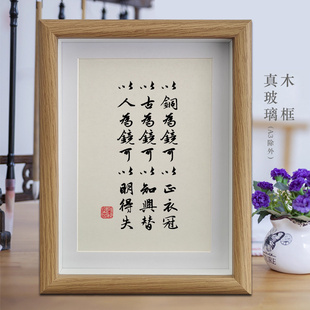 以銅為鏡可以正衣冠
以古為鏡可以知興替
以人為鏡可以明得失
木框
真玻璃
(A3除外)